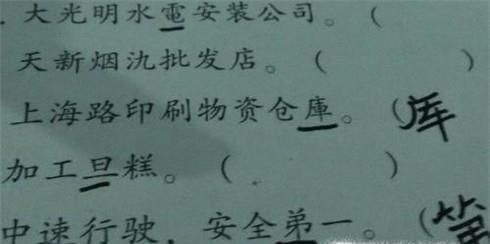 .大光明水電安装公司。(
天新烟氿批发店。( )
上海路印刷物资仓庫。(厍
加工旦糕。( )
中速行驶,安全弟一。(第